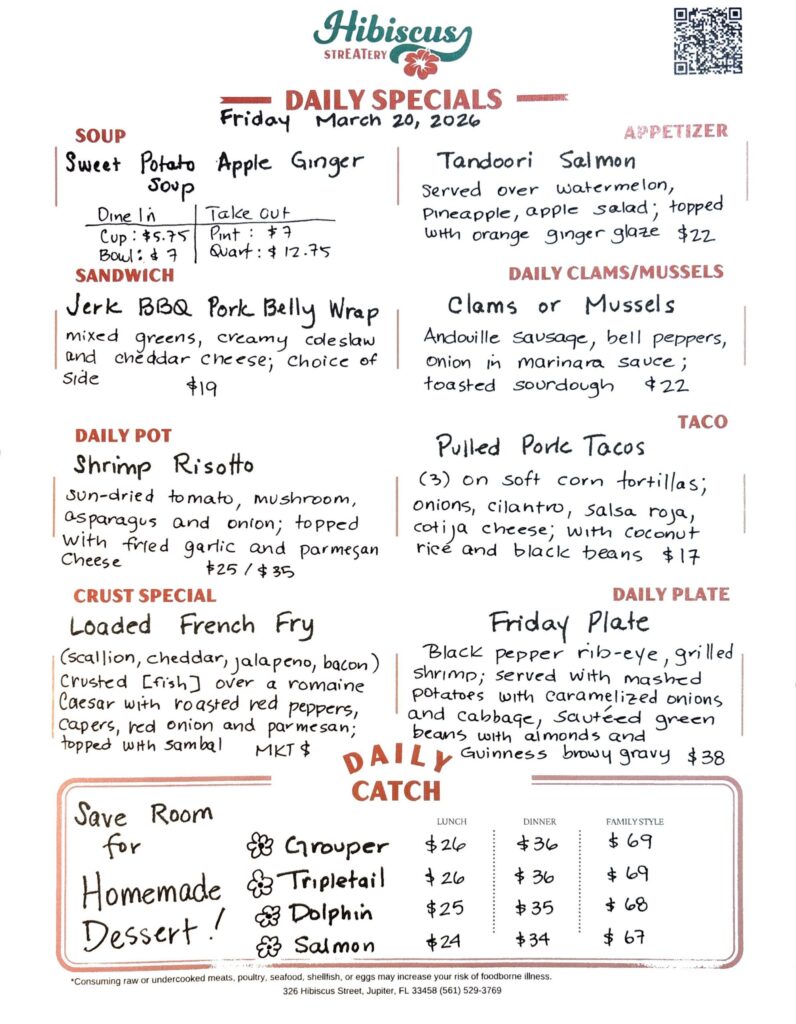 Hibiscus
STREATERY
DAILY SPECIALS
Friday March 20, 2026
SOUP
Sweet Potato Apple Ginger
Soup
Dine In Take Out
Cup: $5.75 Pint: $7
Bowl: $7 Quart: $12.75
APPETIZER
Tandoori Salmon
Served over watermelon,
pineapple, apple salad; topped
with orange ginger glaze $22
SANDWICH
Jerk BBQ Pork Belly Wrap
mixed greens, creamy coleslaw
and cheddar cheese; choice of
side $19
DAILY CLAMS/MUSSELS
Clams or Mussels
Andouille sausage, bell peppers,
onion in marinara sauce;
toasted sourdough $22
DAILY POT
Shrimp Risotto
sun-dried tomato, mushroom,
asparagus and onion; topped
with fried garlic and parmesan
cheese $25 / $35
TACO
Pulled Pork Tacos
(3) on soft corn tortillas;
onions, cilantro, salsa roja,
cotija cheese; with coconut
rice and black beans $17
CRUST SPECIAL
Loaded French Fry
(scallion, cheddar, jalapeno, bacon)
crusted [fish] over a romaine
Caesar with roasted red peppers,
capers, red onion and parmesan;
topped with sambal MKT $
DAILY PLATE
Friday Plate
Black pepper rib-eye, grilled
shrimp; served with mashed
potatoes with caramelized onions
and cabbage, sautéed green
beans with almonds and
Guinness browy gravy $38
DAILY
CATCH
Save Room
for
Homemade
Dessert!
LUNCH DINNER FAMILY STYLE
Grouper $26 $36 $69
Tripletail $26 $36 $69
Dolphin $25 $35 $68
Salmon $24 $34 $67
*Consuming raw or undercooked meats, poultry, seafood, shellfish, or eggs may increase your risk of foodborne illness.
326 Hibiscus Street, Jupiter, FL 33458 (561) 529-3769